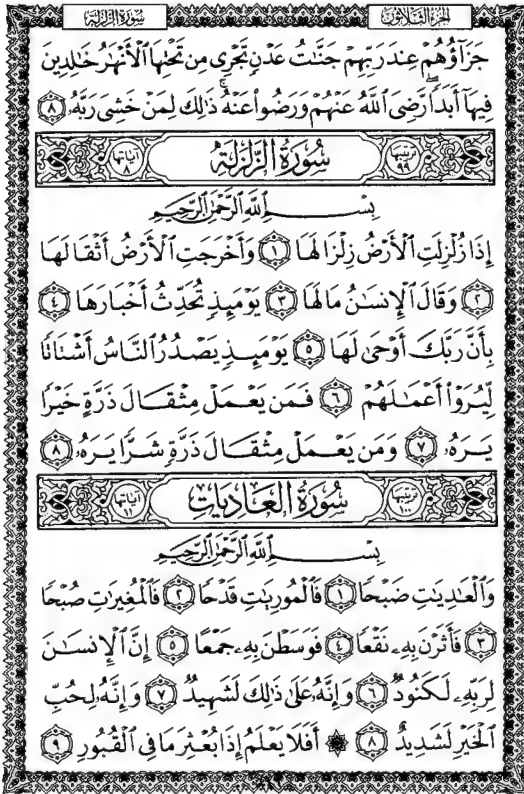 الجزء الثلاثون
سورة الزلزلة
جَزَآؤُهُمْ عِندَ رَبِّهِمْ جَنَّٰتُ عَدْنٍ تَجْرِى مِن تَحْتِهَا ٱلْأَنْهَٰرُ خَٰلِدِينَ
فِيهَآ أَبَدًاۖ رَّضِىَ ٱللَّهُ عَنْهُمْ وَرَضُوا۟ عَنْهُۚ ذَٰلِكَ لِمَنْ خَشِىَ رَبَّهُۥ ٨
ترتيبها ٩٩ سُورَةُ الزَّلْزَلَة آياتها ٨
بِسْمِ ٱللَّهِ ٱلرَّحْمَٰنِ ٱلرَّحِيمِ
إِذَا زُلْزِلَتِ ٱلْأَرْضُ زِلْزَالَهَا ١ وَأَخْرَجَتِ ٱلْأَرْضُ أَثْقَالَهَا
٢ وَقَالَ ٱلْإِنسَٰنُ مَا لَهَا ٣ يَوْمَئِذٍ تُحَدِّثُ أَخْبَارَهَا ٤
بِأَنَّ رَبَّكَ أَوْحَىٰ لَهَا ٥ يَوْمَئِذٍ يَصْدُرُ ٱلنَّاسُ أَشْتَاتًا
لِّيُرَوْا۟ أَعْمَٰلَهُمْ ٦ فَمَن يَعْمَلْ مِثْقَالَ ذَرَّةٍ خَيْرًا
يَرَهُۥ ٧ وَمَن يَعْمَلْ مِثْقَالَ ذَرَّةٍ شَرًّا يَرَهُۥ ٨
ترتيبها ١٠٠ سُورَةُ العَادِيَات آياتها ١١
بِسْمِ ٱللَّهِ ٱلرَّحْمَٰنِ ٱلرَّحِيمِ
وَٱلْعَٰدِيَٰتِ ضَبْحًا ١ فَٱلْمُورِيَٰتِ قَدْحًا ٢ فَٱلْمُغِيرَٰتِ صُبْحًا
٣ فَأَثَرْنَ بِهِۦ نَقْعًا ٤ فَوَسَطْنَ بِهِۦ جَمْعًا ٥ إِنَّ ٱلْإِنسَٰنَ
لِرَبِّهِۦ لَكَنُودٌ ٦ وَإِنَّهُۥ عَلَىٰ ذَٰلِكَ لَشَهِيدٌ ٧ وَإِنَّهُۥ لِحُبِّ
ٱلْخَيْرِ لَشَدِيدٌ ٨ ۞ أَفَلَا يَعْلَمُ إِذَا بُعْثِرَ مَا فِى ٱلْقُبُورِ ٩